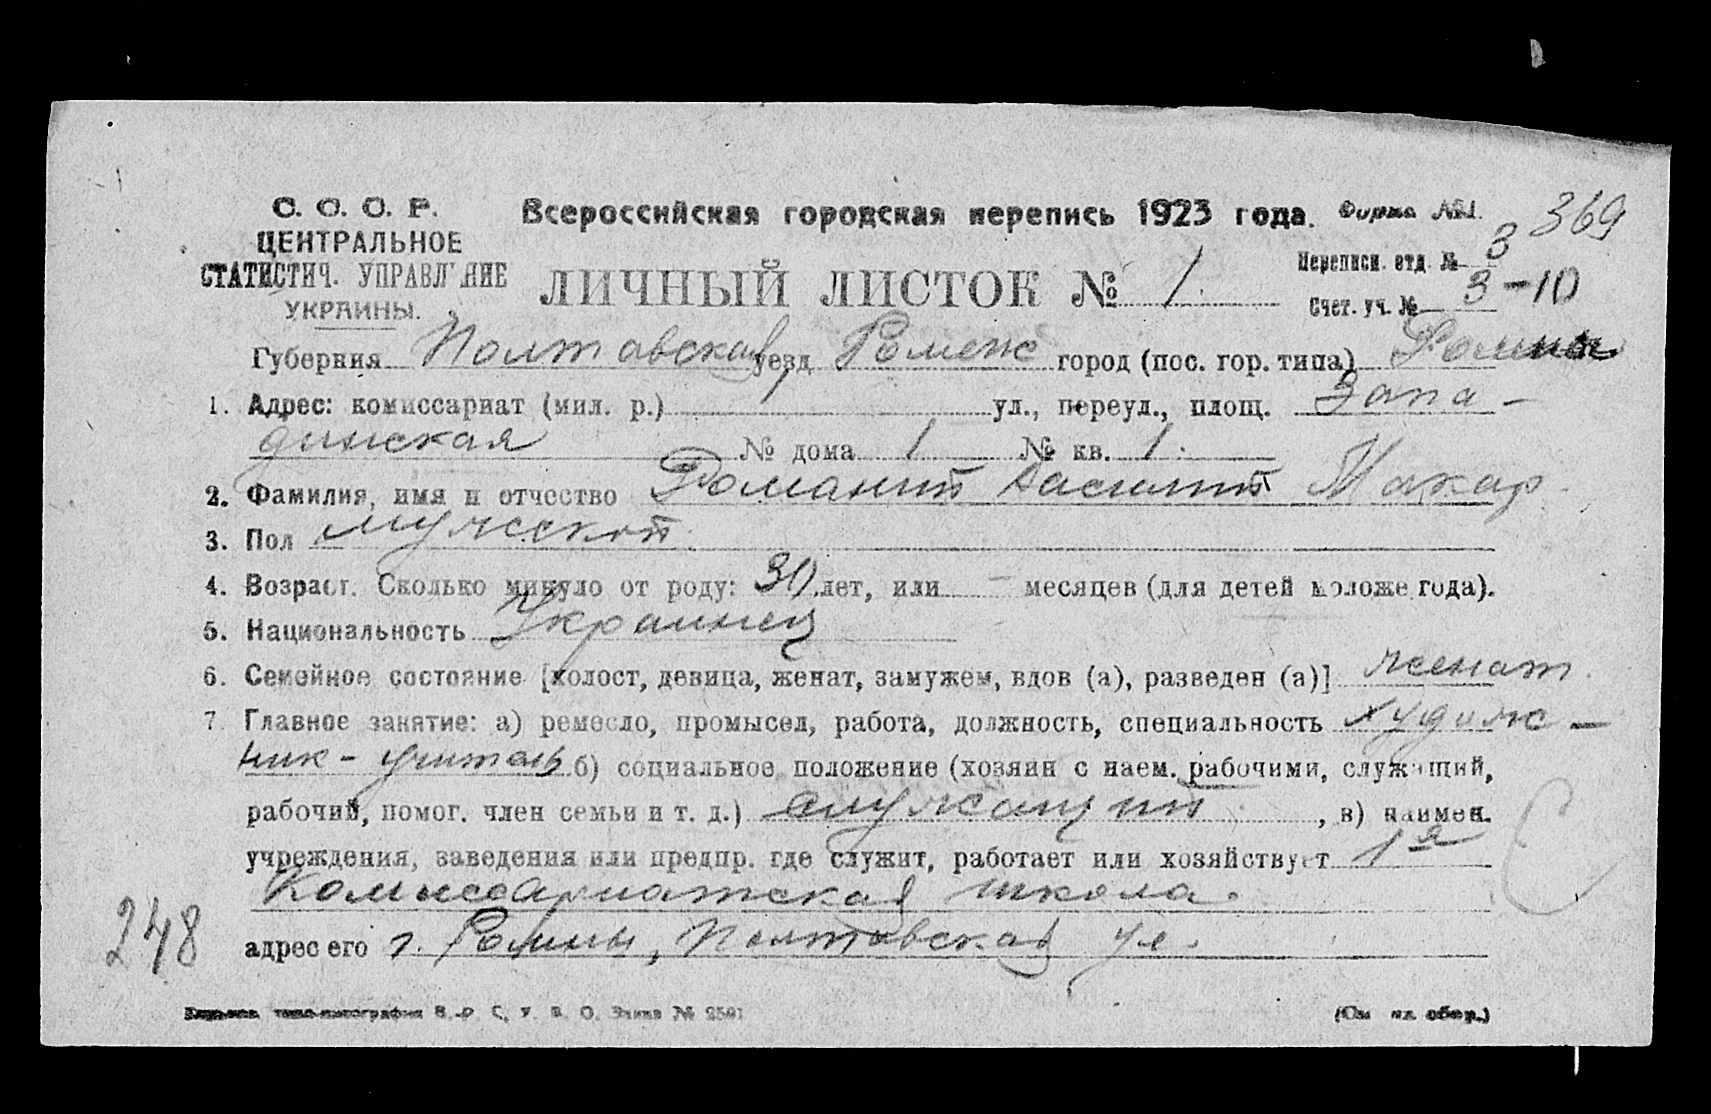 С. С. С. Р.
ЦЕНТРАЛЬНОЕ
СТАТИСТИЧ. УПРАВЛЕНИЕ
УКРАИНЫ.
Всероссийская городская перепись 1923 года. Форма №1. 369
ЛИЧНЫЙ ЛИСТОК № 1.
Переписн. отд. № 3
Счет. уч. № 3-10
Губерния Полтавская уезд Роменс город (пос. гор. типа) Ромны
1. Адрес: комиссариат (мил. р.) ул., переул., площ. Запа-
динская № дома 1 № кв. 1.
2. Фамилия, имя и отчество Романит Василит Макар.
3. Пол мужской
4. Возраст. Сколько минуло от роду: 30 лет, или - месяцев (для детей моложе года).
5. Национальность Украинец
6. Семейное состояние [холост, девица, женат, замужем, вдов (а), разведен (а)] женат.
7. Главное занятие: а) ремесло, промысел, работа, должность, специальность худож-
ник - учитель б) социальное положение (хозяин с наем. рабочими, служащий,
рабочий, помог. член семьи и т. д.) служащий, в) наимен.
учреждения, заведения или предпр. где служит, работает или хозяйствует 1я
Комиссариатская школа.
адрес его г. Ромны, Полтавская ул.
248
С
Заказ № 2591
(См. на обор.)